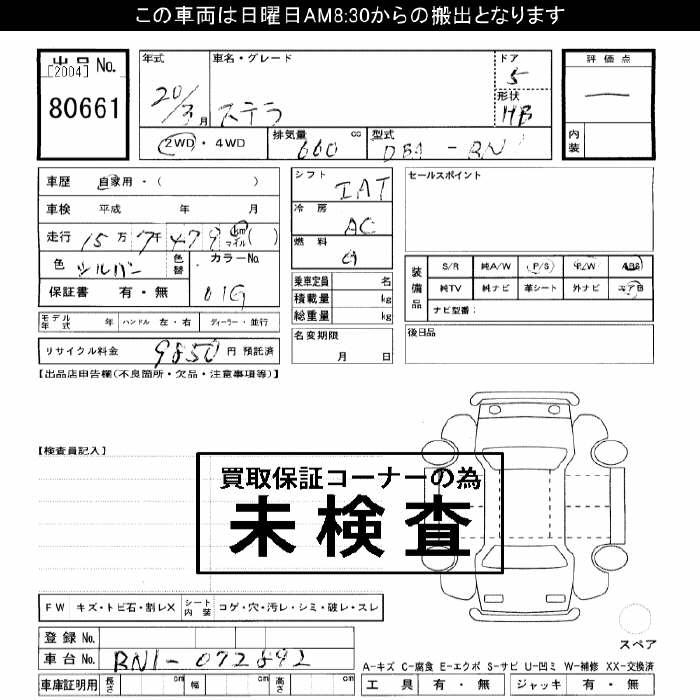 この車両は日曜日AM8:30からの搬出となります
出品 No.
[2004]
80661
年式 20/3月
車名・グレード ステラ
ドア 5
形状 HB
2WD・4WD
排気量 660 cc
型式 DBA - RN1
評価点 ー
内装
車歴 自家用・( )
車検 平成 年 月
走行 15万7千479 km マイル( )
色 シルバー
色替
カラーNo. 01G
保証書 有・無
モデル年式 年 ハンドル 左・右 ディーラー・並行
リサイクル料金 9850 円 預託済
シフト IAT
冷房 AC
燃料 G
乗車定員 名
積載量 kg
総重量 kg
名変期限 月 日
セールスポイント
装備品 S/R 純A/W P/S P/W ABS
純TV 純ナビ 革シート 外ナビ エアB
ナビ型番:
後日品
【出品店申告欄(不良箇所・欠品・注意事項等)】
【検査員記入】
買取保証コーナーの為
未検査
FW キズ・トビ石・割レX シート内装 コゲ・穴・汚レ・シミ・破レ・スレ
登録 No.
車台 No. RN1-072892
車庫証明用 長さ cm 幅 cm 高さ cm
スペア
A-キズ C-腐食 E-エクボ S-サビ U-凹ミ W-補修 XX-交換済
工具 有・無 ジャッキ 有・無